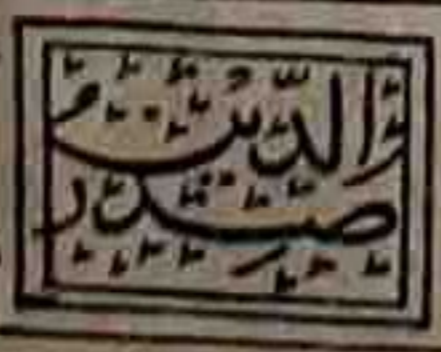 صدر
الدین